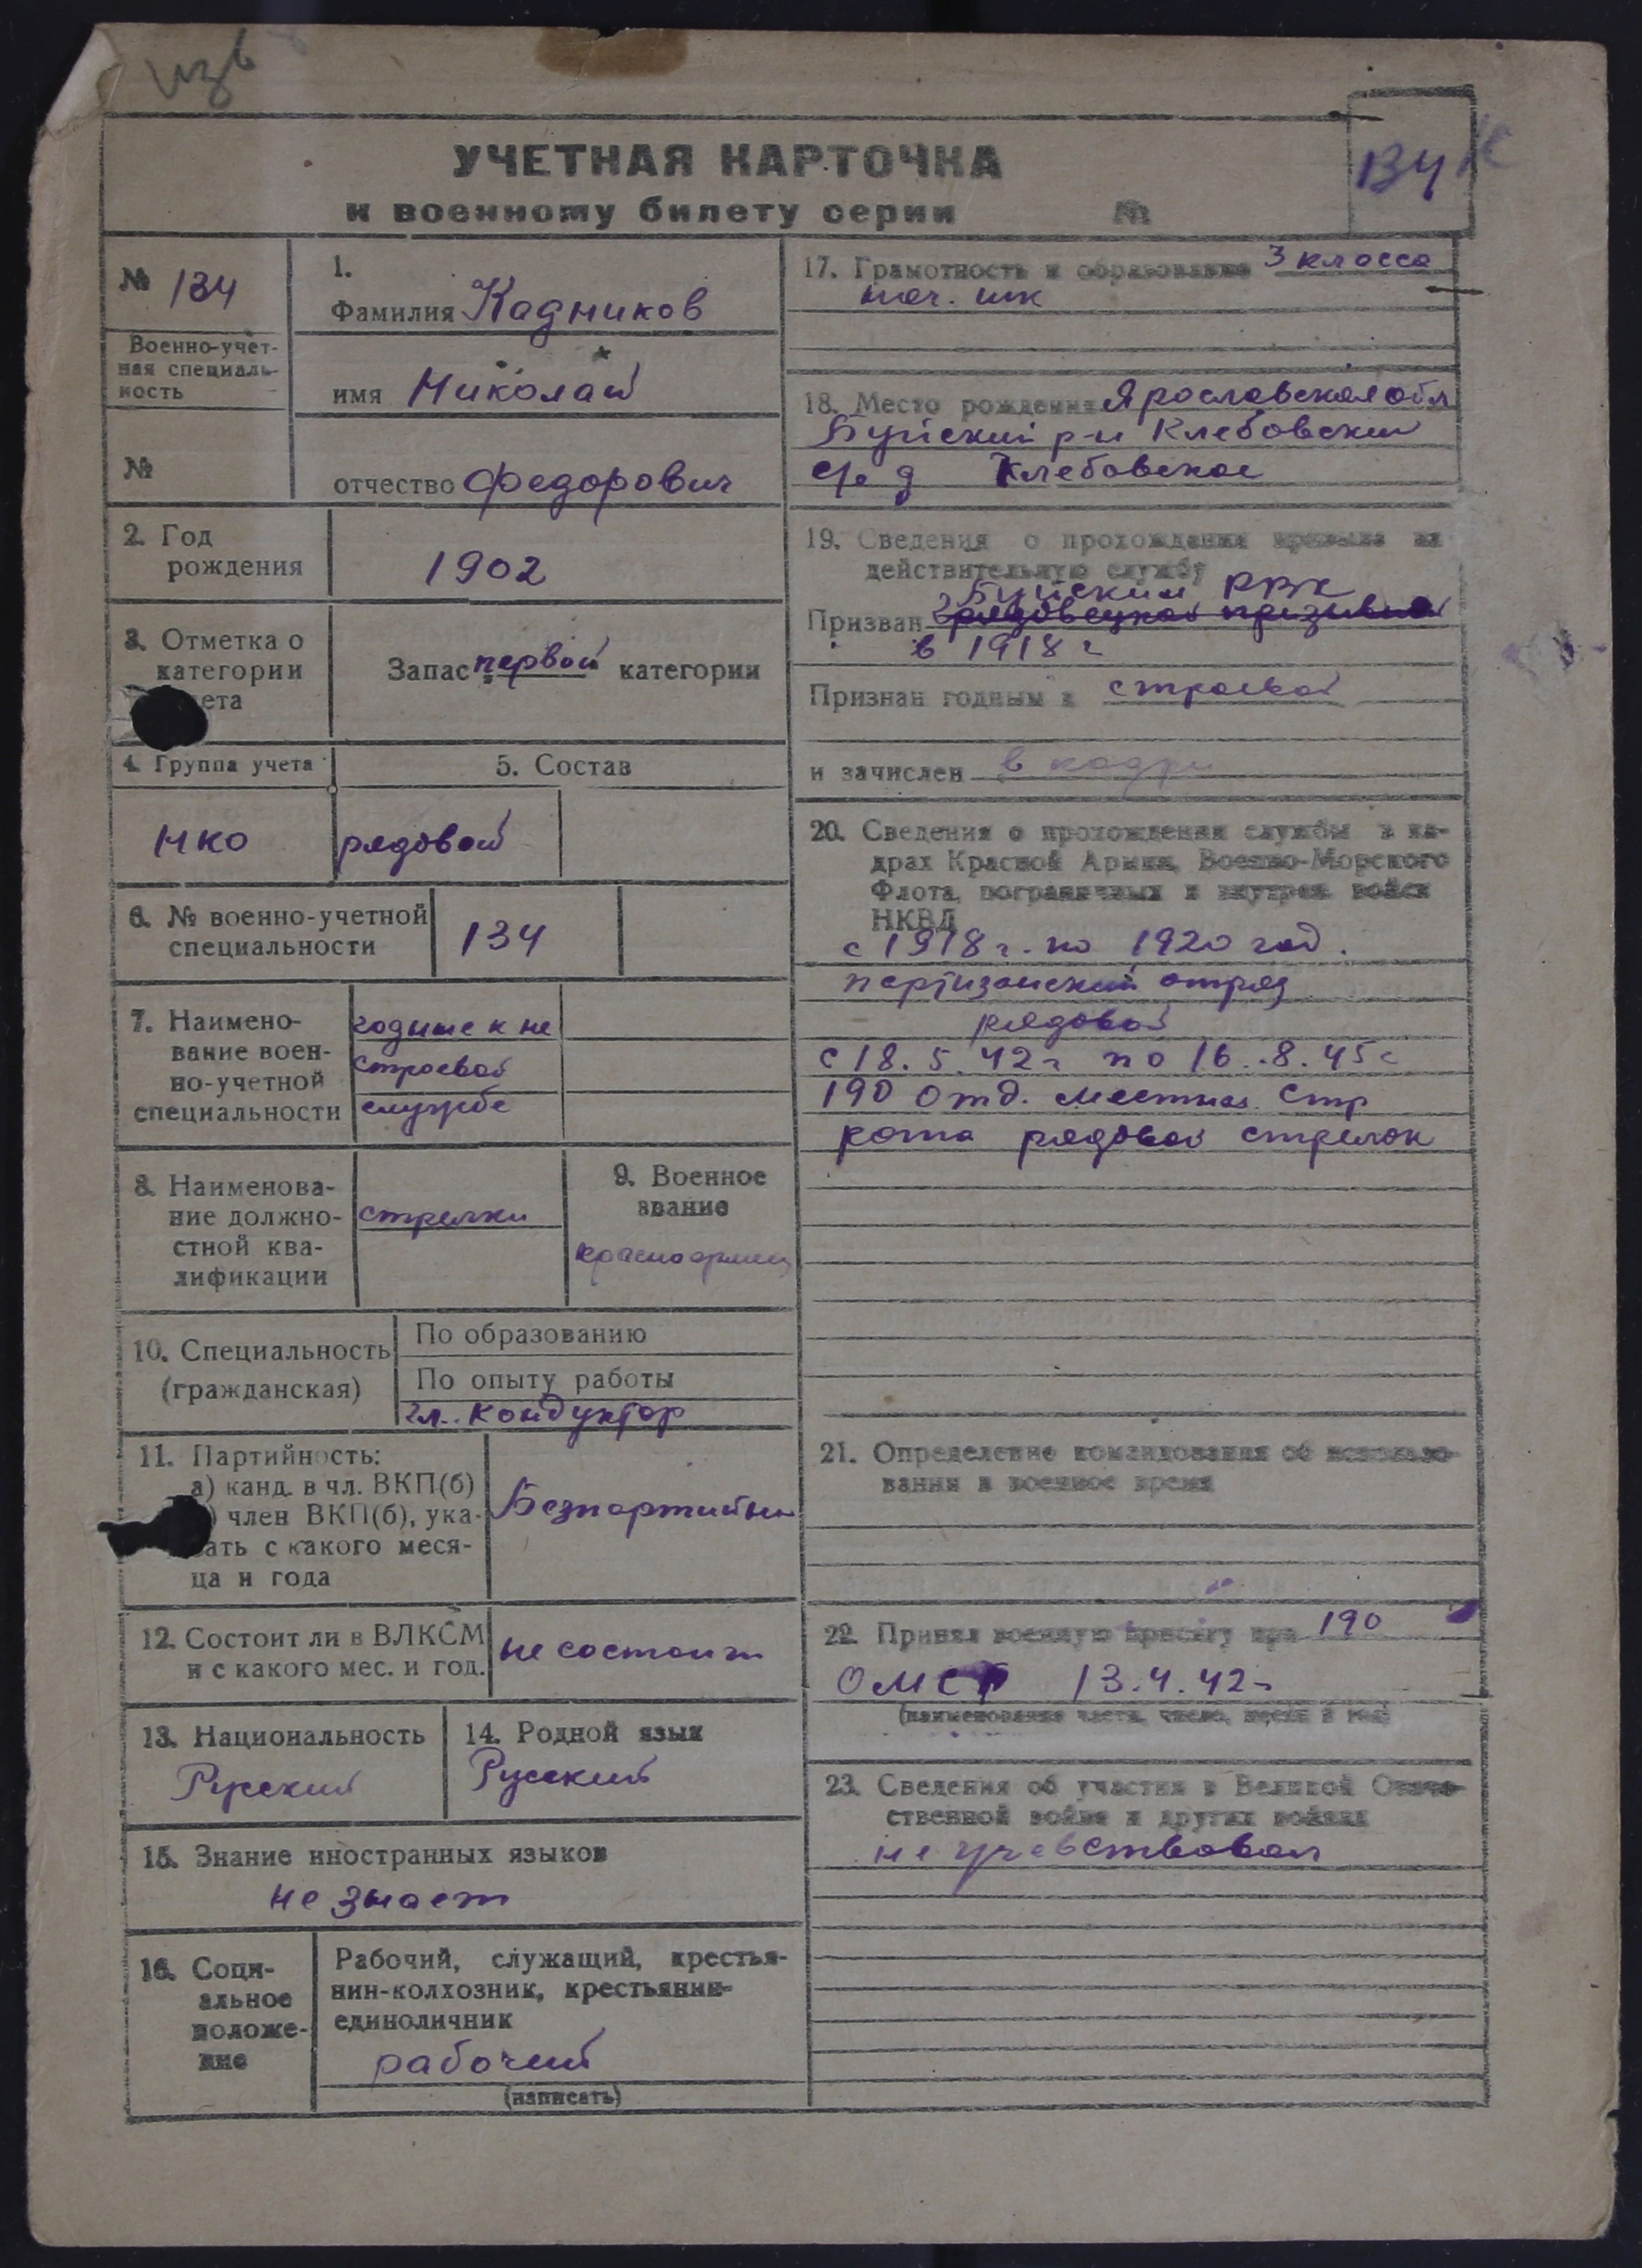 Изв
УЧЕТНАЯ КАРТОЧКА
к военному билету серии №
ВУК
№ 134
Военно-учет-
ная специаль-
ность
№
1.
Фамилия Кадников
имя Николай
отчество Федорович
2. Год
рождения
1902
3. Отметка о
категории
ета
Запас первой категории
4. Группа учета
5. Состав
НКО
рядовой
6. № военно-учетной
специальности
134
7. Наимено-
вание воен-
но-учетной
специальности
годные к не
строевой
службе
8. Наименова-
ние должно-
стной ква-
лификации
стрелки
9. Военное
звание
красноармеец
10. Специальность
(гражданская)
По образованию
По опыту работы
гл. кондуктор
11. Партийность:
а) канд. в чл. ВКП(б)
) член ВКП(б), ука-
зать с какого меся-
ца и года
Безпартийный
12. Состоит ли в ВЛКСМ
и с какого мес. и год.
не состоит
13. Национальность
Русский
14. Родной язык
Русский
15. Знание иностранных языков
не знает
16. Соци-
альное
положе-
ние
Рабочий, служащий, крестья-
нин-колхозник, крестьянин-
единоличник
рабочий
(написать)
17. Грамотность и образование 3 класса
нач. шк
18. Место рождения Ярославская обл
Буйский р-н Клебовский
с/с д Клебовское
19. Сведения о прохождении призыва на
действительную службу
Буйским РВК
Призван
в 1918 г
Признан годным к строевой
и зачислен в кадры
20. Сведения о прохождении службы в ка-
драх Красной Армии, Военно-Морского
Флота, пограничных и внутрен. войск
НКВД
с 1918 г. по 1920 год.
партизанский отряд
рядовой
с 18.5.42 г по 16.8.45 г
190 отд. местная стр
рота рядовой стрелок
21. Определение командования об использо-
вании в военное время
22. Принял военную присягу при 190
ОМСР 13.4.42 г
(наименование части, число, месяц и год)
23. Сведения об участии в Великой Отече-
ственной войне и других войнах
не учавствовал